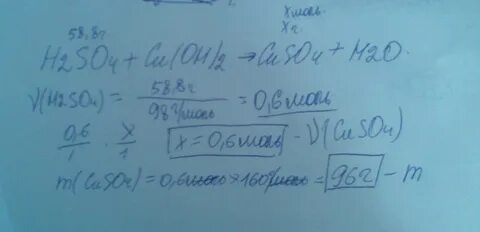 x моль.
58,8г x г.
H2SO4 + Cu(OH)2 → CuSO4 + H2O.
ν(H2SO4) = 58,8г / 98г/моль = 0,6 моль
0,6/1 · x/1 x = 0,6 моль - ν(CuSO4)
m(CuSO4) = 0,6 моль * 160г/моль = 96г - m